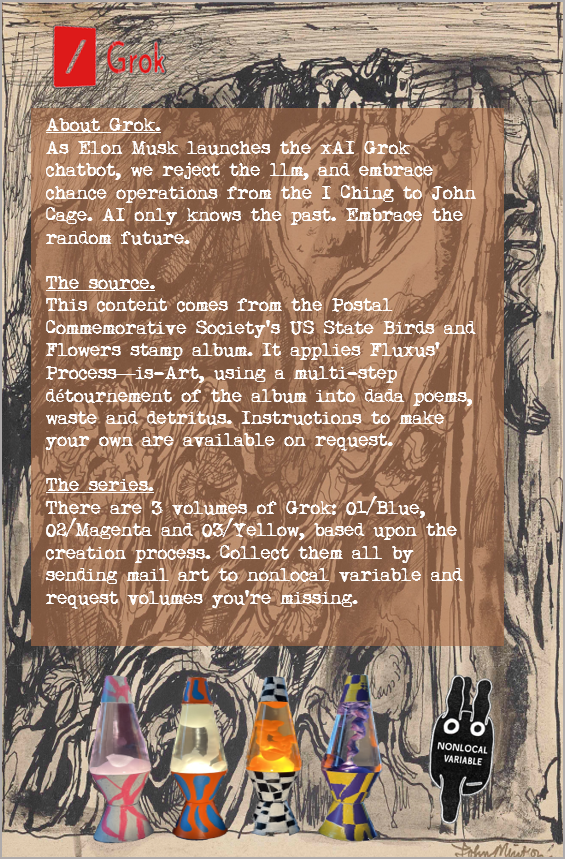 Grok
About Grok.
As Elon Musk launches the xAI Grok
chatbot, we reject the llm, and embrace
chance operations from the I Ching to John
Cage. AI only knows the past. Embrace the
random future.
The source.
This content comes from the Postal
Commemorative Society's US State Birds and
Flowers stamp album. It applies Fluxus'
Process—is-Art, using a multi-step
détournement of the album into dada poems,
waste and detritus. Instructions to make
your own are available on request.
The series.
There are 3 volumes of Grok: 01/Blue,
02/Magenta and 03/Yellow, based upon the
creation process. Collect them all by
sending mail art to nonlocal variable and
request volumes you're missing.
NONLOCAL
VARIABLE
John Minton